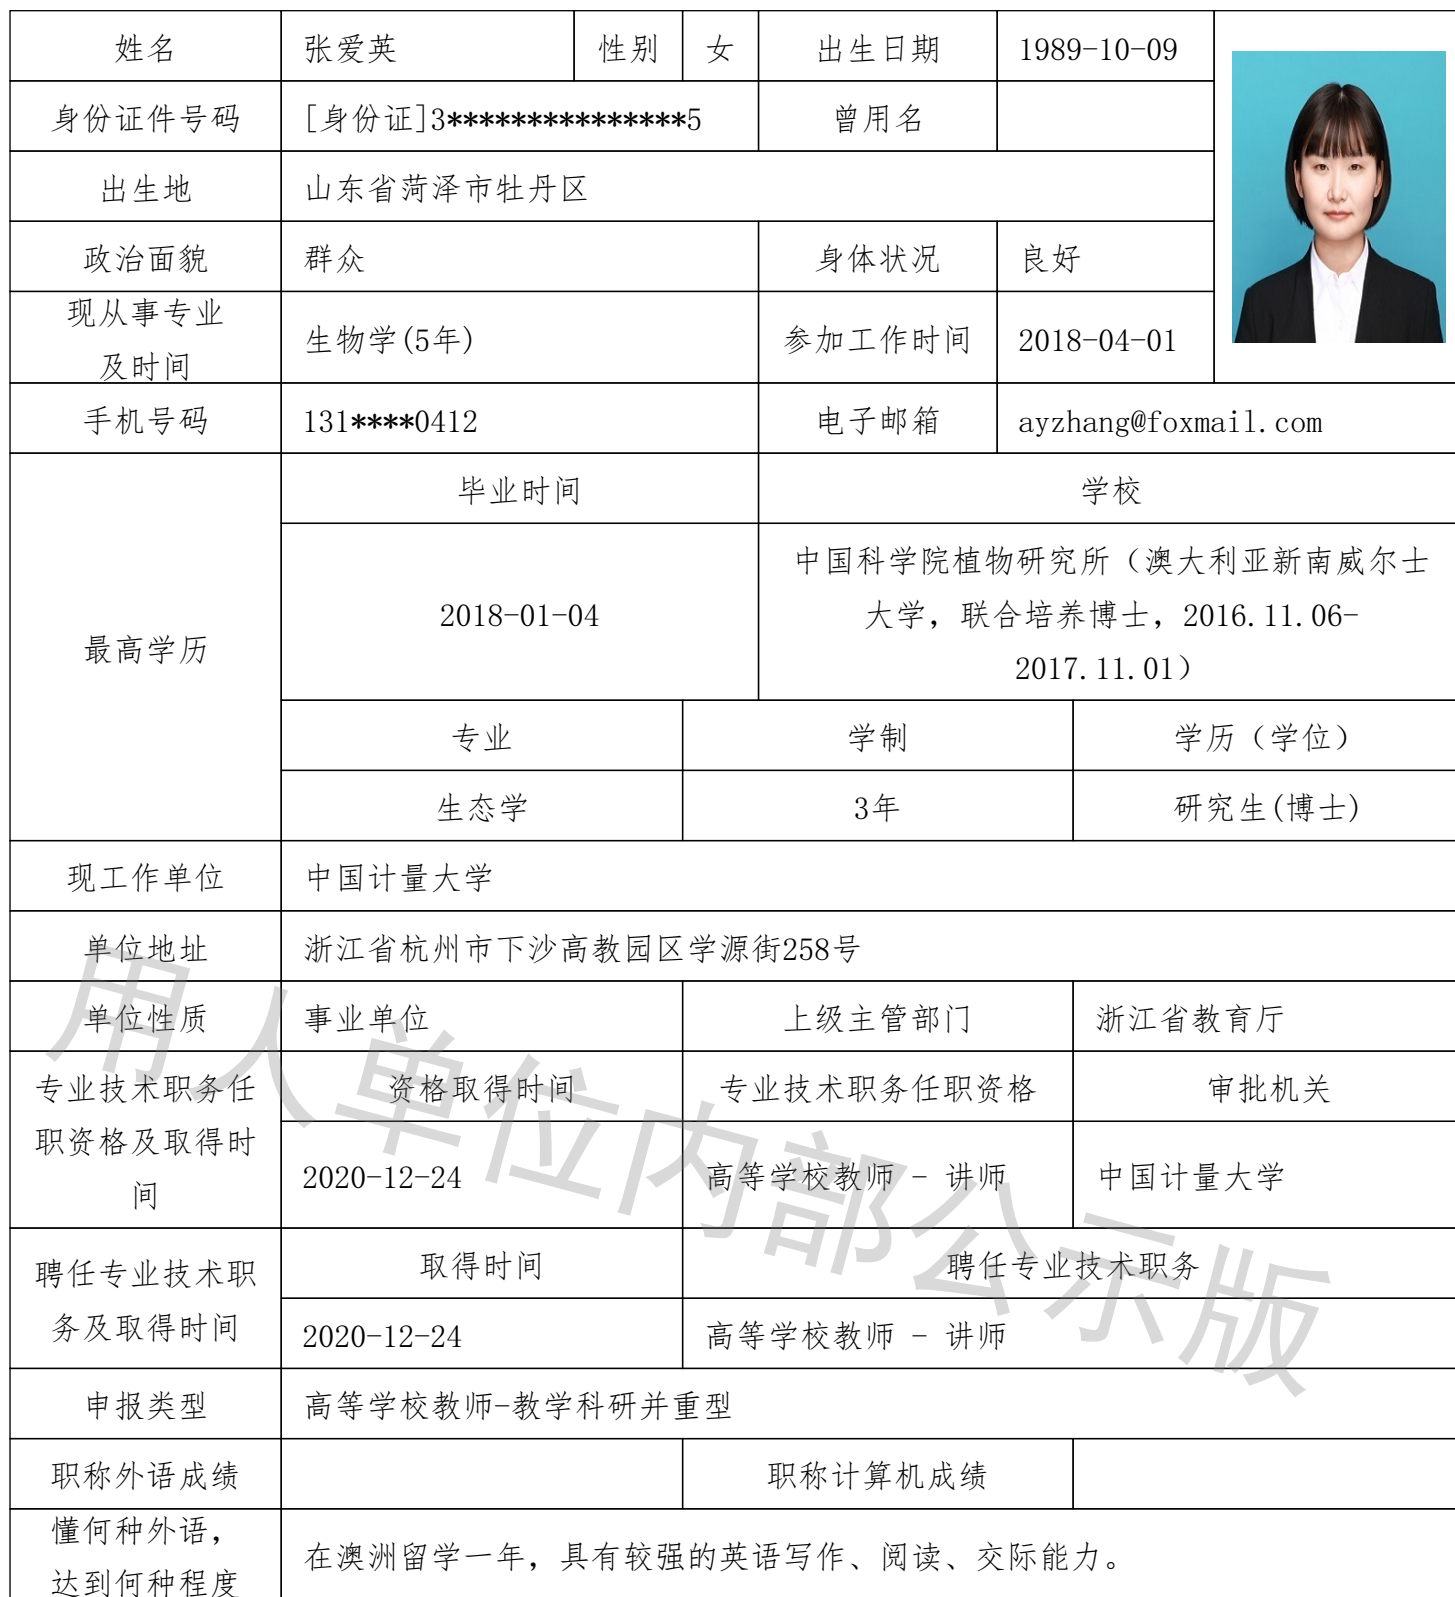 姓名 张爱英 性别 女 出生日期 1989-10-09
身份证件号码 [身份证]3***************5 曾用名
出生地 山东省菏泽市牡丹区
政治面貌 群众 身体状况 良好
现从事专业
及时间
生物学(5年) 参加工作时间 2018-04-01
手机号码 131****0412 电子邮箱 ayzhang@foxmail.com
最高学历
毕业时间 学校
2018-01-04
中国科学院植物研究所（澳大利亚新南威尔士
大学，联合培养博士，2016.11.06-
2017.11.01）
专业 学制 学历（学位）
生态学 3年 研究生(博士)
现工作单位 中国计量大学
单位地址 浙江省杭州市下沙高教园区学源街258号
单位性质 事业单位 上级主管部门 浙江省教育厅
专业技术职务任
职资格及取得时
间
资格取得时间 专业技术职务任职资格 审批机关
2020-12-24 高等学校教师 - 讲师 中国计量大学
聘任专业技术职
务及取得时间
取得时间 聘任专业技术职务
2020-12-24 高等学校教师 - 讲师
申报类型 高等学校教师-教学科研并重型
职称外语成绩 职称计算机成绩
懂何种外语，
达到何种程度
在澳洲留学一年，具有较强的英语写作、阅读、交际能力。
用人单位内部公示版